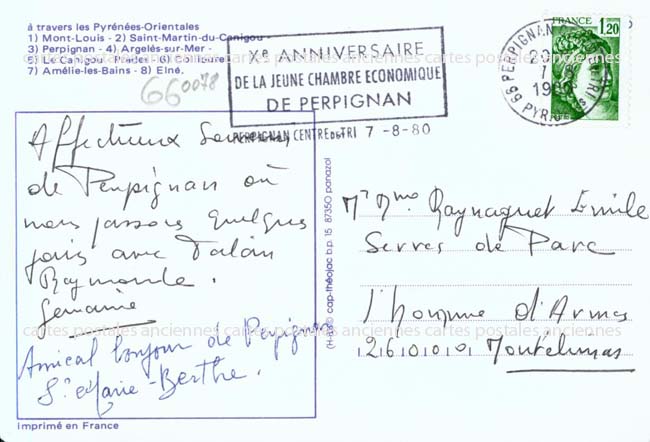 à travers les Pyrénées-Orientales
1) Mont-Louis - 2) Saint-Martin-du-Canigou -
3) Perpignan - 4) Argelès-sur-Mer -
5) Le Canigou - Prades - 6) Collioure -
7) Amélie-les-Bains - 8) Elne.
660078
Xe ANNIVERSAIRE
DE LA JEUNE CHAMBRE ECONOMIQUE
DE PERPIGNAN
PERPIGNAN CENTRE DE TRI 7-8-80
66 PERPIGNAN
PYR
FRANCE
1,20
POSTES
Affectueux Souvenirs
de Perpignan où
nous passons quelques
jours avec
Raymonde.
Germaine
Amical bonjour de Perpignan
Sr Marie-Berthe.
Mr Mme Raynaguet Emile
Serres de Parc
l'homme d'Armes
26100 Montélimar
cap-théojac b.p. 15 87350 panazol
cartes postales anciennes cartes postales anciennes cartes postales anciennes
Imprimé en France